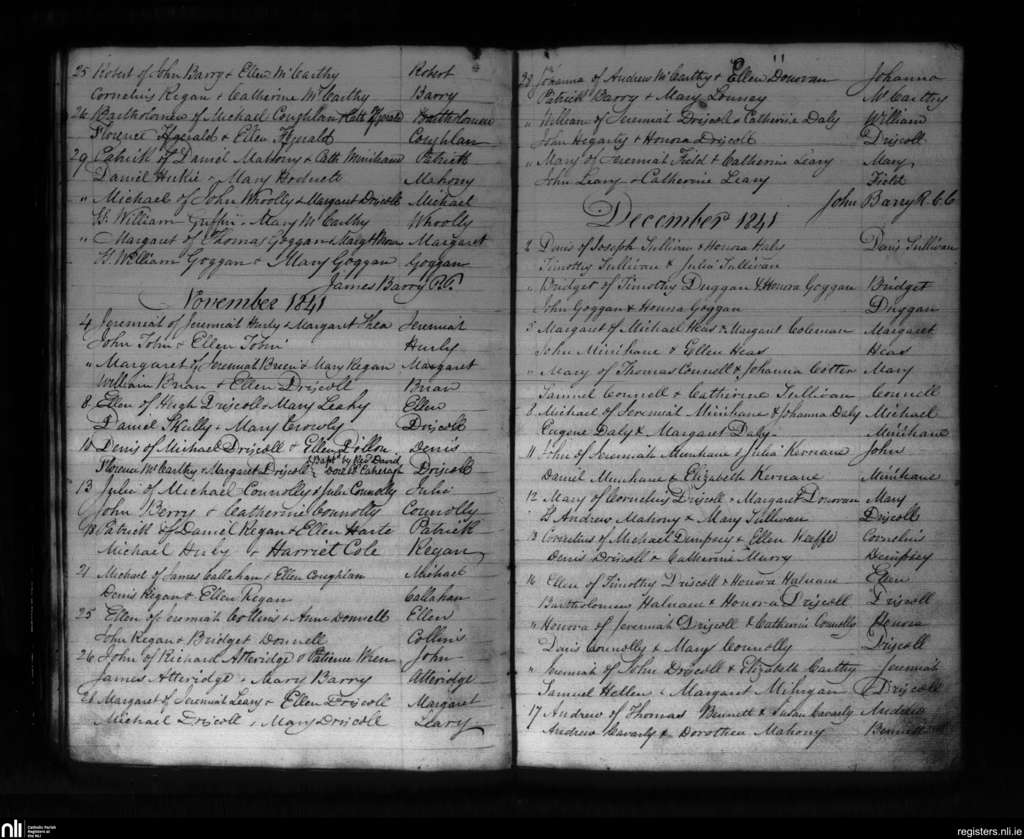 25 Robert of John Barry & Ellen McCarthy Robert
Cornelius Regan & Catherine McCarthy Barry
26 Bartholomew of Michael Coughlan & Cath Fzgerald Bartholomew
Florence Fzgerald & Ellen Fzgerald Coughlan
29 Patrick of Daniel Mahony & Cath Minihane Patrick
Daniel Hickie & Mary Hodnett Mahony
" Michael of John Whoolly & Margaret Driscoll Michael
William Griffin & Mary McCarthy Whoolly
" Margaret of Thomas Goggan & Mary Margaret
William Goggan & Mary Goggan Goggan
James Barry P.P.
November 1841
4 Jeremiah of Jeremiah Hurly & Margaret Shea Jeremiah
John Tobin & Ellen Tobin Hurly
" Margaret of Jeremiah Brien & Mary Regan Margaret
William Brian & Ellen Driscoll Brian
8 Ellen of Hugh Driscoll & Mary Leahy Ellen
Daniel Skully & Mary Crowly Driscoll
10 Denis of Michael Driscoll & Ellen Dillon Denis
Florence McCarthy & Margaret Driscoll Baptd by Revd David Dore at Caheragh Driscoll
13 Julia of Michael Connolly & Julia Connolly Julia
John Berry & Catherine Connolly Connolly
18 Patrick of Daniel Regan & Ellen Harte Patrick
Michael & Harriet Cole Regan
21 Michael of James Callahan & Ellen Coughlan Michael
Denis Regan & Ellen Regan Callahan
25 Ellen of Jeremiah Collins & Anne Donnell Ellen
John Regan & Bridget Donnell Collins
26 John of Richard Atteridge & Patience Wren John
James Atteridge & Mary Barry Atteridge
28 Margaret of Jeremiah Leary & Ellen Driscoll Margaret
Michael Driscoll & Mary Driscoll Leary
28 Johanna of Andrew McCarthy & Ellen Donovan Johanna
Patrick Barry & Mary Lonney McCarthy
" William of Jeremiah Driscoll & Catherine Daly William
John Hegarty & Honora Driscoll Driscoll
" Mary of Jeremiah Field & Catherine Leary Mary
John Leary & Catherine Leary Field
John Barry R.C.C
December 1841
2 Denis of Joseph Sullivan & Honora Denis Sullivan
Timothy Sullivan & Julia Sullivan
" Bridget of Timothy Duggan & Honora Goggan Bridget
John Goggan & Honora Goggan Duggan
5 Margaret of Michael Heas & Margaret Coleman Margaret
John Minihane & Ellen Heas Heas
" Mary of Thomas Connell & Johanna Cotter Mary
Samuel Connell & Catherine Sullivan Connell
8 Michael of Jeremiah Minihane & Johanna Daly Michael
Eugene Daly & Margaret Daly Minihane
11 John of Jeremiah Minihane & Julia Kernane John
Daniel Minihane & Elizabeth Kernane Minihane
12 Mary of Cornelius Driscoll & Margaret Donovan Mary
Andrew Mahony & Mary Sullivan Driscoll
13 Cornelius of Michael Dempsey & Ellen Keeffe Cornelius
Denis Driscoll & Catherine Murry Dempsey
16 Ellen of Timothy Driscoll & Honora Halnane Ellen
Bartholomew Halnane & Honora Driscoll Driscoll
" Honora of Jeremiah Driscoll & Catherine Connolly Honora
Denis Connolly & Mary Connolly Driscoll
" Jeremiah of John Driscoll & Elizabeth Carthy Jeremiah
Samuel Hellen & Margaret Mihigan Driscoll
17 Andrew of Thomas Bennett & Susan Caverly Andrew
Andrew Caverly & Dorothea Mahony Bennett
nli Catholic Parish
Registers at
the NLI
registers.nli.ie